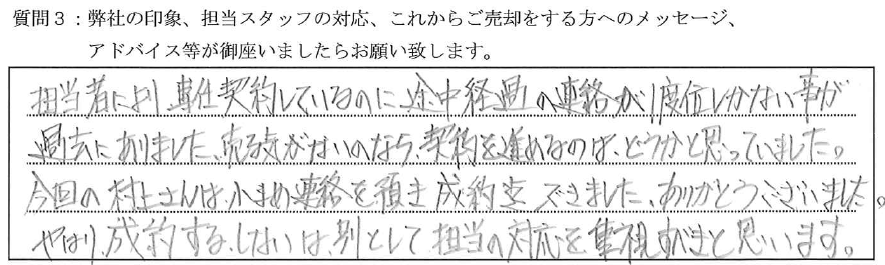 質問３：弊社の印象、担当スタッフの対応、これからご売却をする方へのメッセージ、
アドバイス等が御座いましたらお願い致します。
担当者により専任契約しているのに途中経過の連絡が1度位しかない事が
過去にありました、売る気がないのなら、契約を進めるのは、どうかと思っていました。
今回の村上さんは、小まめ連絡を頂き成約迄できました、ありがとうございました。
やはり、成約する、しないは、別として担当の対応を重視すべきと思います。